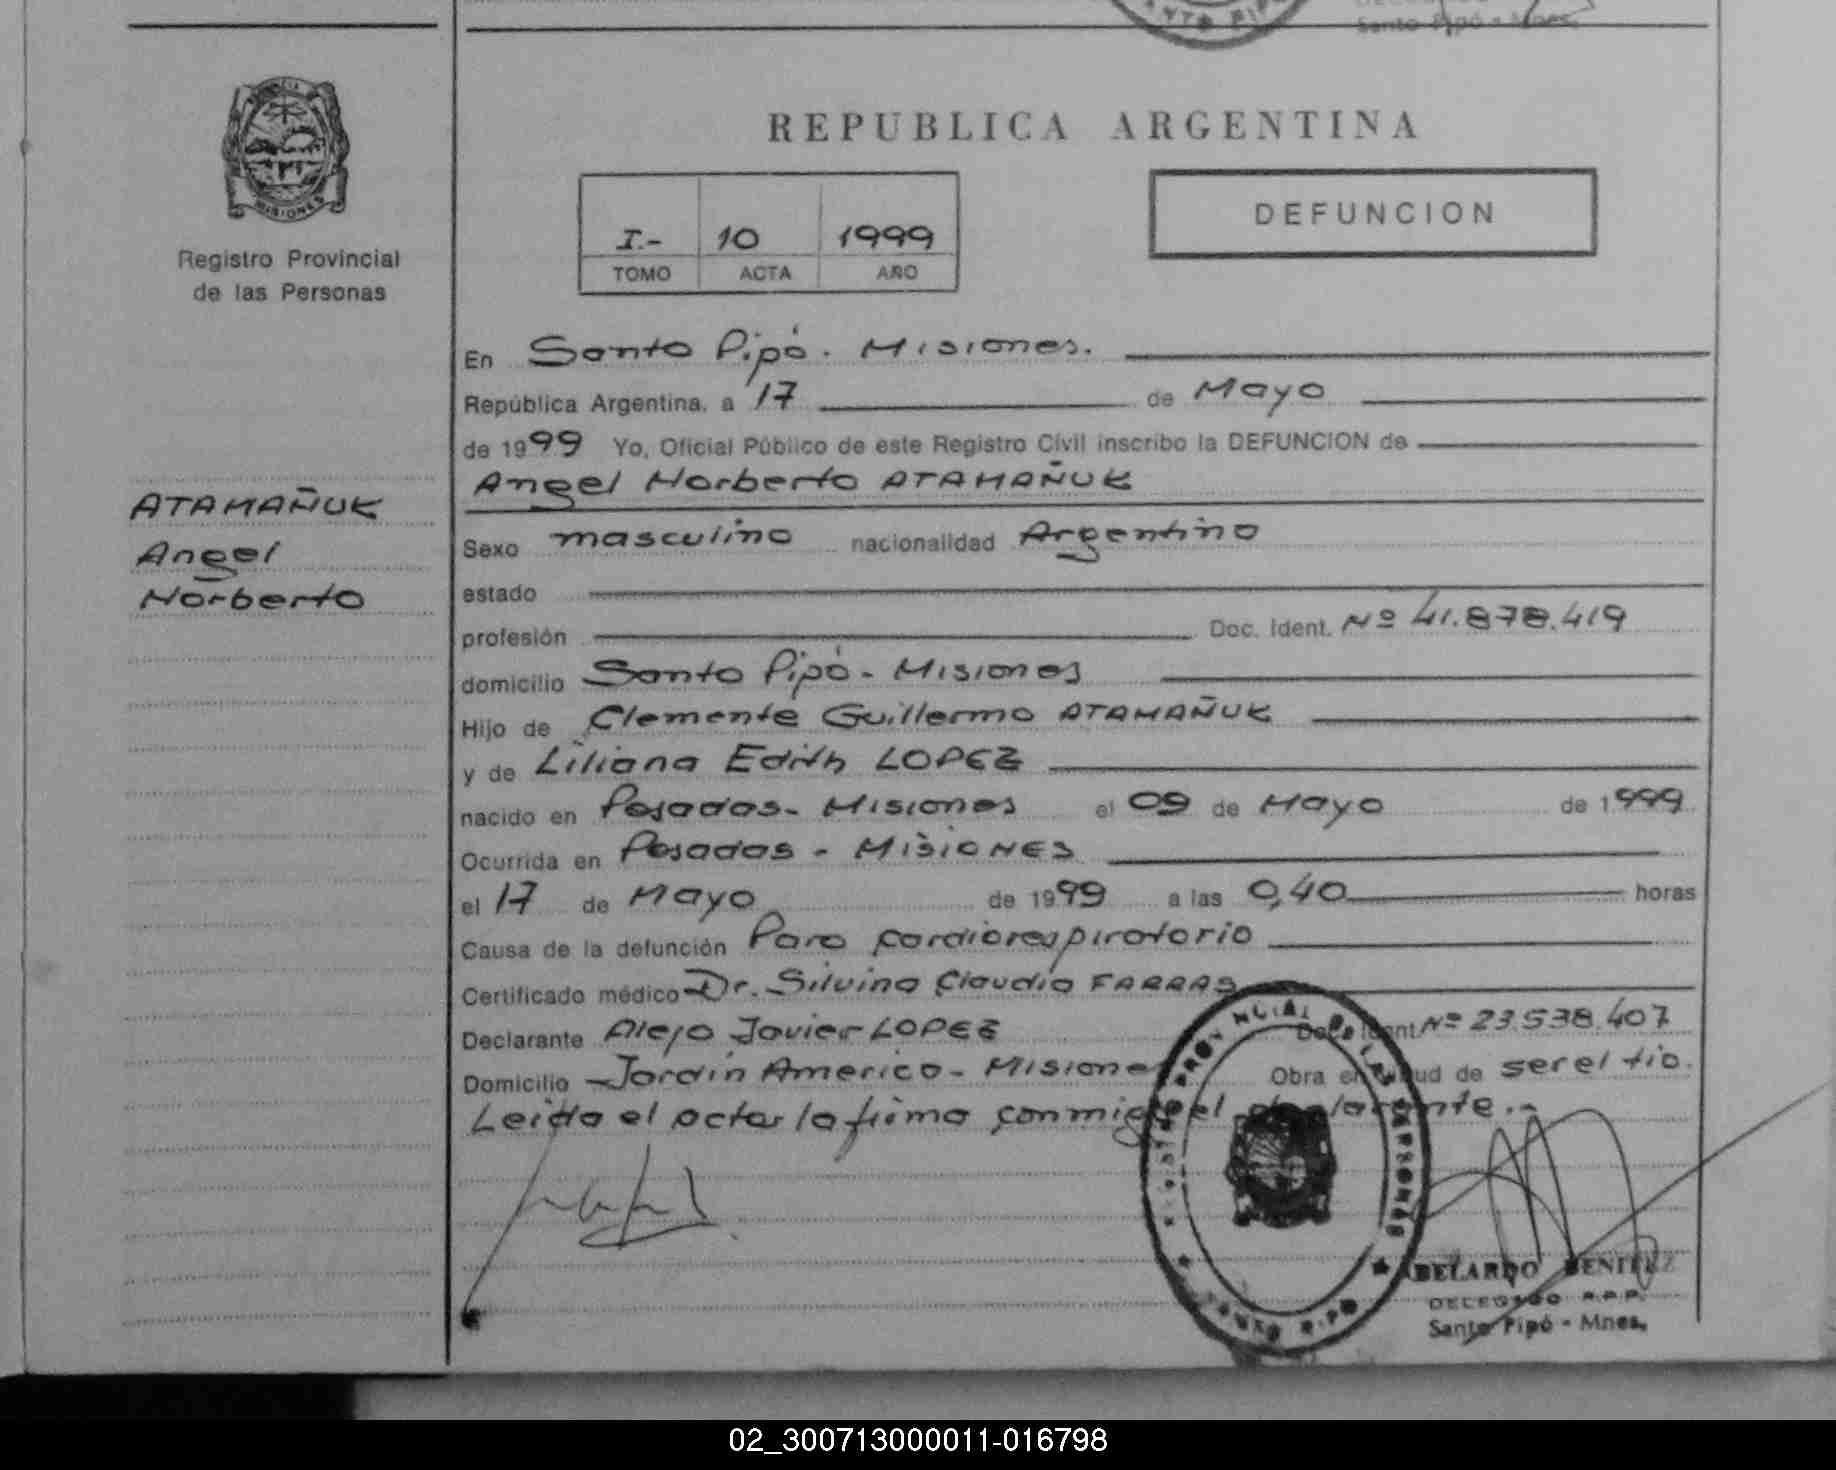 SANTO PIPO
Santo Pipó - Mnes.
PROVINCIA DE
MISIONES
Registro Provincial
de las Personas
REPUBLICA ARGENTINA
I.- 10 1999
TOMO ACTA AÑO
DEFUNCION
En Santo Pipó. Misiones.
República Argentina, a 17 de Mayo
de 1999 Yo, Oficial Público de este Registro Civil inscribo la DEFUNCION de
Angel Norberto ATAMAÑUK
ATAMAÑUK
Angel
Norberto
Sexo masculino nacionalidad Argentino
estado
profesión Doc. Ident. Nº 41.878.419
domicilio Santo Pipó - Misiones
Hijo de Clemente Guillermo ATAMAÑUK
y de Liliana Edith LOPEZ
nacido en Posadas - Misiones el 09 de Mayo de 1999
Ocurrida en Posadas - MISIONES
el 17 de Mayo de 1999 a las 0,40 horas
Causa de la defunción Paro cardiorespiratorio
Certificado médico Dr. Silvina Claudia FARRAS
Declarante Alejo Javier LOPEZ Doc. Ident. Nº 23.538.407
Domicilio Jardin America - Misiones Obra en virtud de ser el tio.
Leida el acta la firma conmigo el declarante.-
REGISTRO PROVINCIAL DE LAS PERSONAS
SANTO PIPO
ABELARDO BENITEZ
DELEGADO R.P.P.
Santo Pipó - Mnes.
02_300713000011-016798